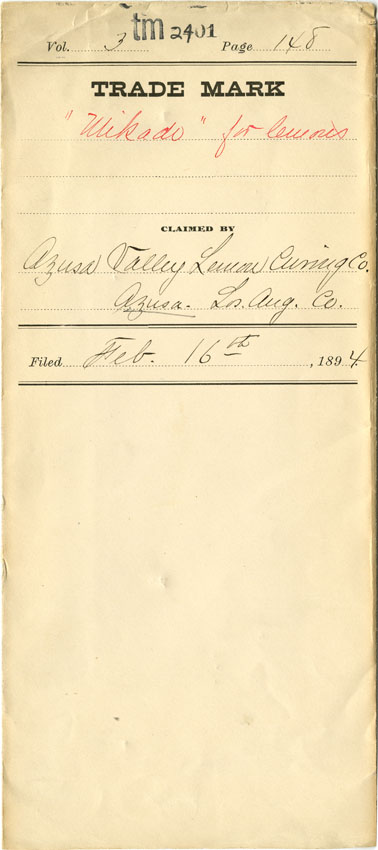 tm 2401
Vol. 3 Page 148
TRADE MARK
"Mikado" for lemons
CLAIMED BY
Azusa Valley Lemon Curing Co.
Azusa. Los. Ang. Co.
Filed Feb. 16th, 1894.